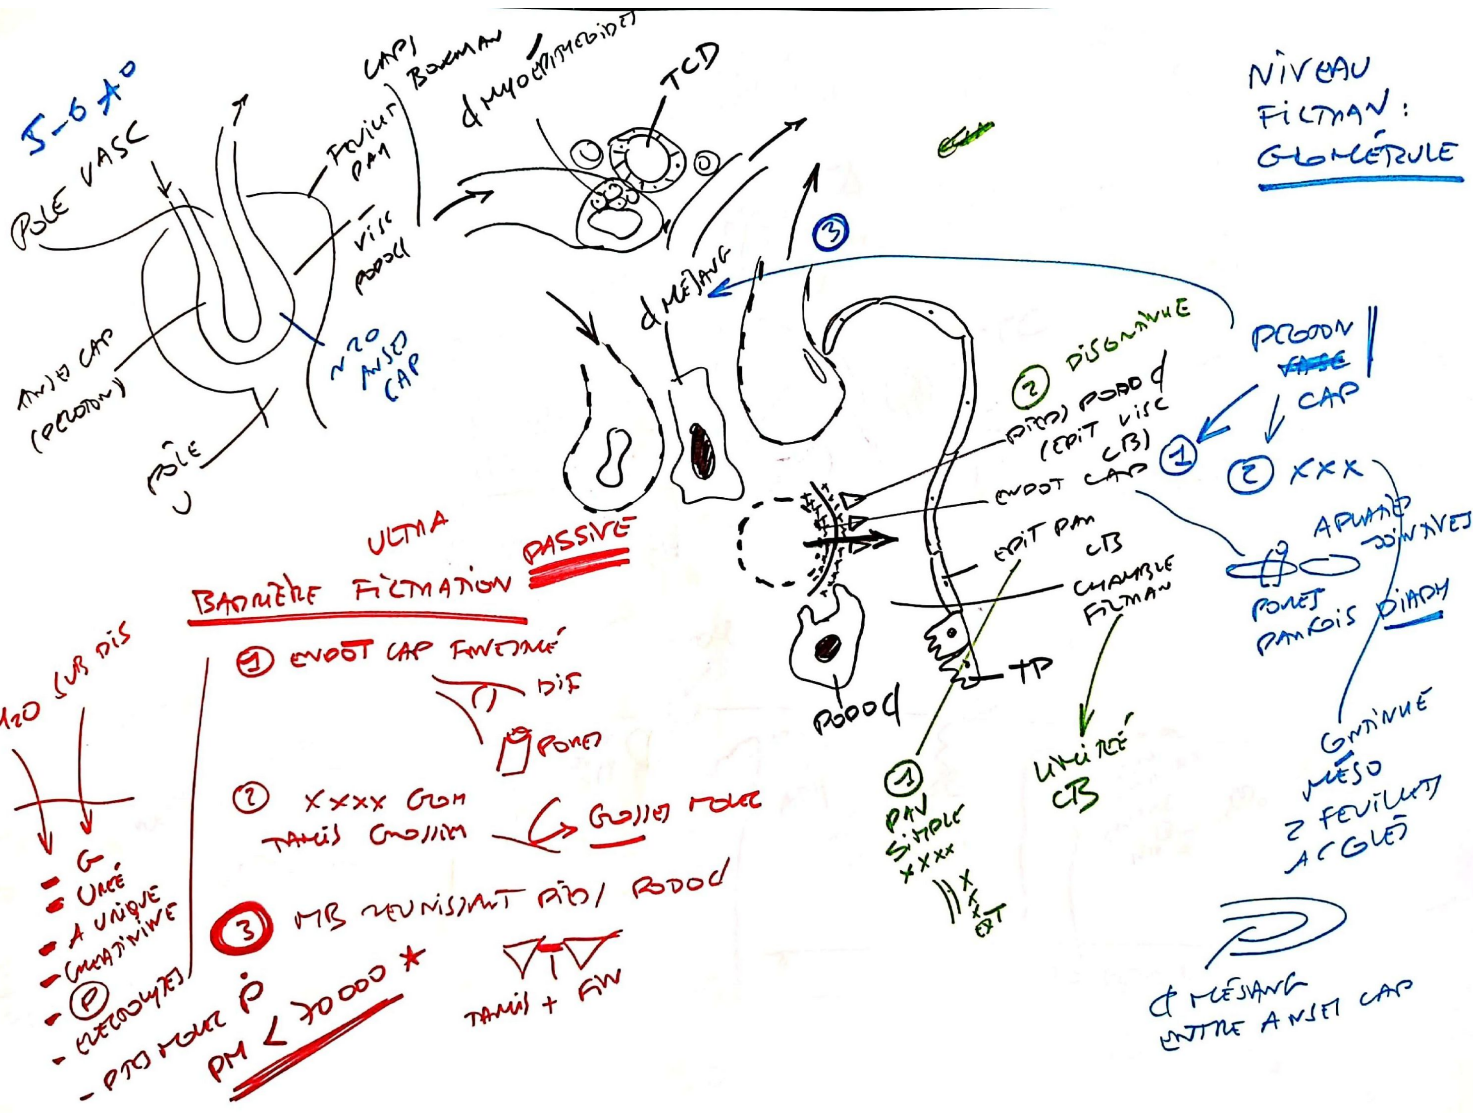 5-6 A°
PÔLE VASC
CAPS
BOWMAN
FEUILLET
PAR
VISC
PODO¢
ANSES CAP
(PELOTON)
N 20
ANSES
CAP
PÔLE
U
¢ MYOÉPITHELOÏDES
TCD
¢ MÉSANG
3
NIVEAU
FILTRAN :
GLOMÉRULE
PELOTON
CAP
1
2 XXX
APLATIES
JOINTIVES
PORES
PARFOIS DIAPH
CONTINUE
MÉSO
2 FEUILLETS
ACCOLÉS
¢ MÉSANG
ENTRE ANSES CAP
2 DISCONTINUE
PIEDS PODO¢
(EPIT VISC
CB)
ENDOT CAP
EPIT PAR
CB
CHAMBRE
FILTRAN
TP
PODO¢
LIMITÉE
CB
1
PAV
SIMPLE
XXXX
EXT
ULTRA
BARRIÈRE FILTRATION PASSIVE
1 ENDOT CAP FENESTRÉ
DIF
PORES
2 XXXX GLOM
TAMIS GROSSIER
GROSSES MOLEC
3 MB REUNISSANT PIEDS PODO¢
TAMIS + FIN
H2O SUB DIS
- G
- URÉE
- A URIQUE
- CREATININE
- P
- ELECTROLYTES
- PTES MOLEC P
PM < 70000 *